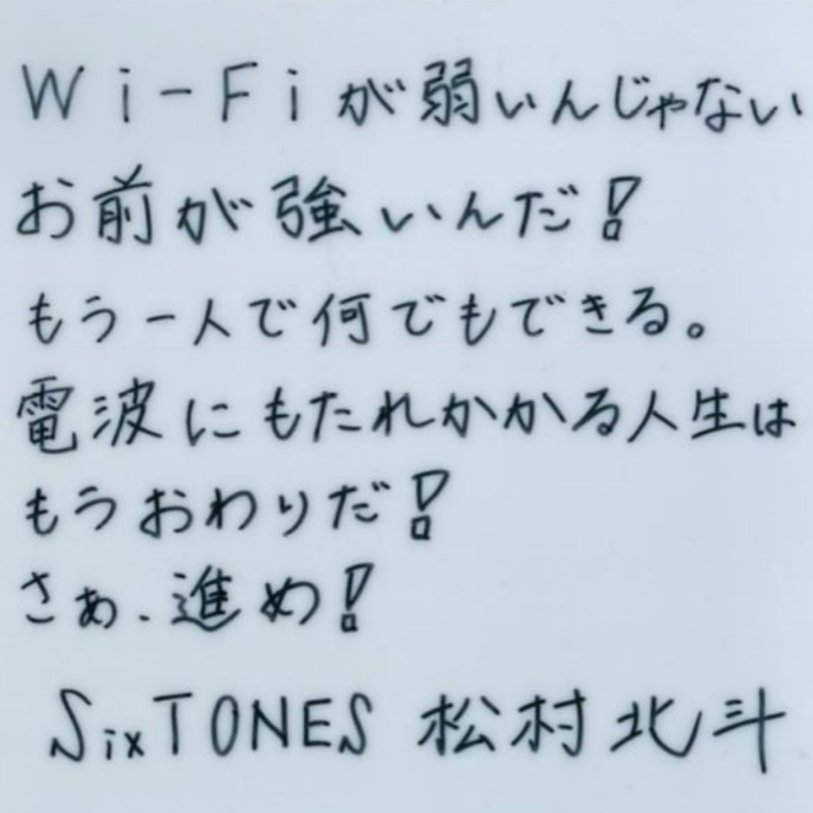 Wi-Fiが弱いんじゃない
お前が強いんだ!
もう一人で何でもできる。
電波にもたれかかる人生は
もうおわりだ!
さぁ、進め!
SixTONES 松村北斗